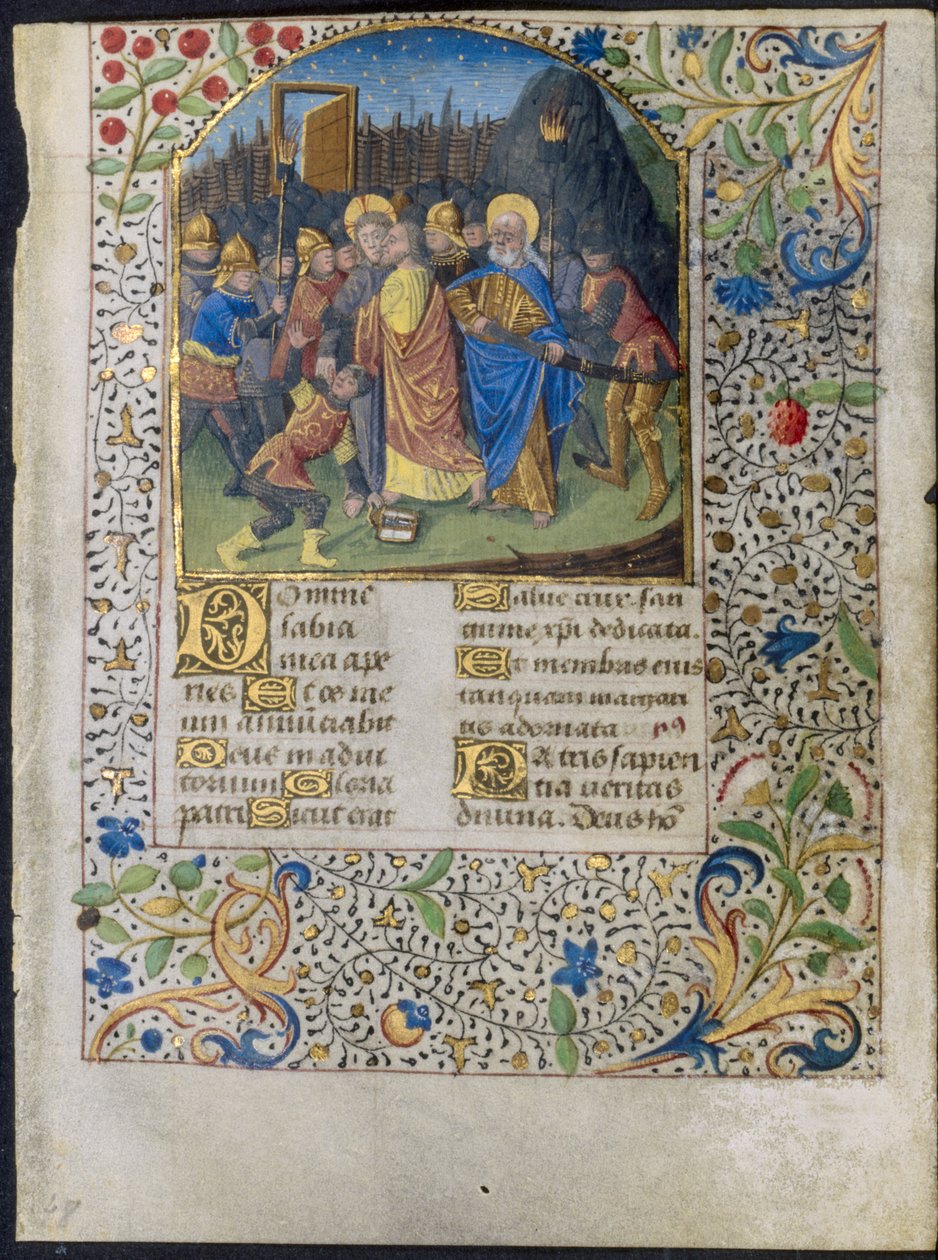 Domine
labia
mea ape
ries Et os me
um annuciabit
Deus in adiu
torium Gloria
patri Sicut erat
Salue crux. san
guine xpi dedicata.
Et membris eius
tanquam margari
tis adornata
Patris sapien
tia ueritas
diuina. Deus ho